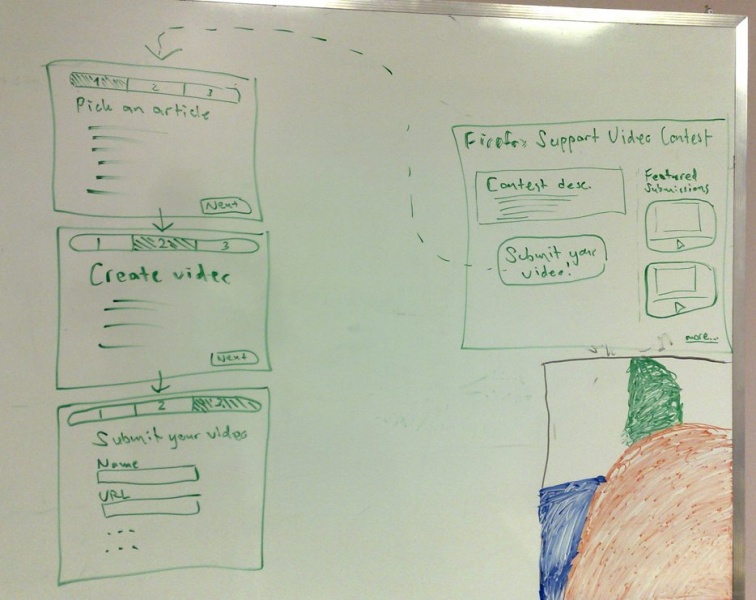 1 2 3
Pick an article
Next
1 2 3
Create video
Next
1 2 3
Submit your video
Name
URL
Firefox Support Video Contest
Contest desc.
Submit your
video!
Featured
Submissions
more...